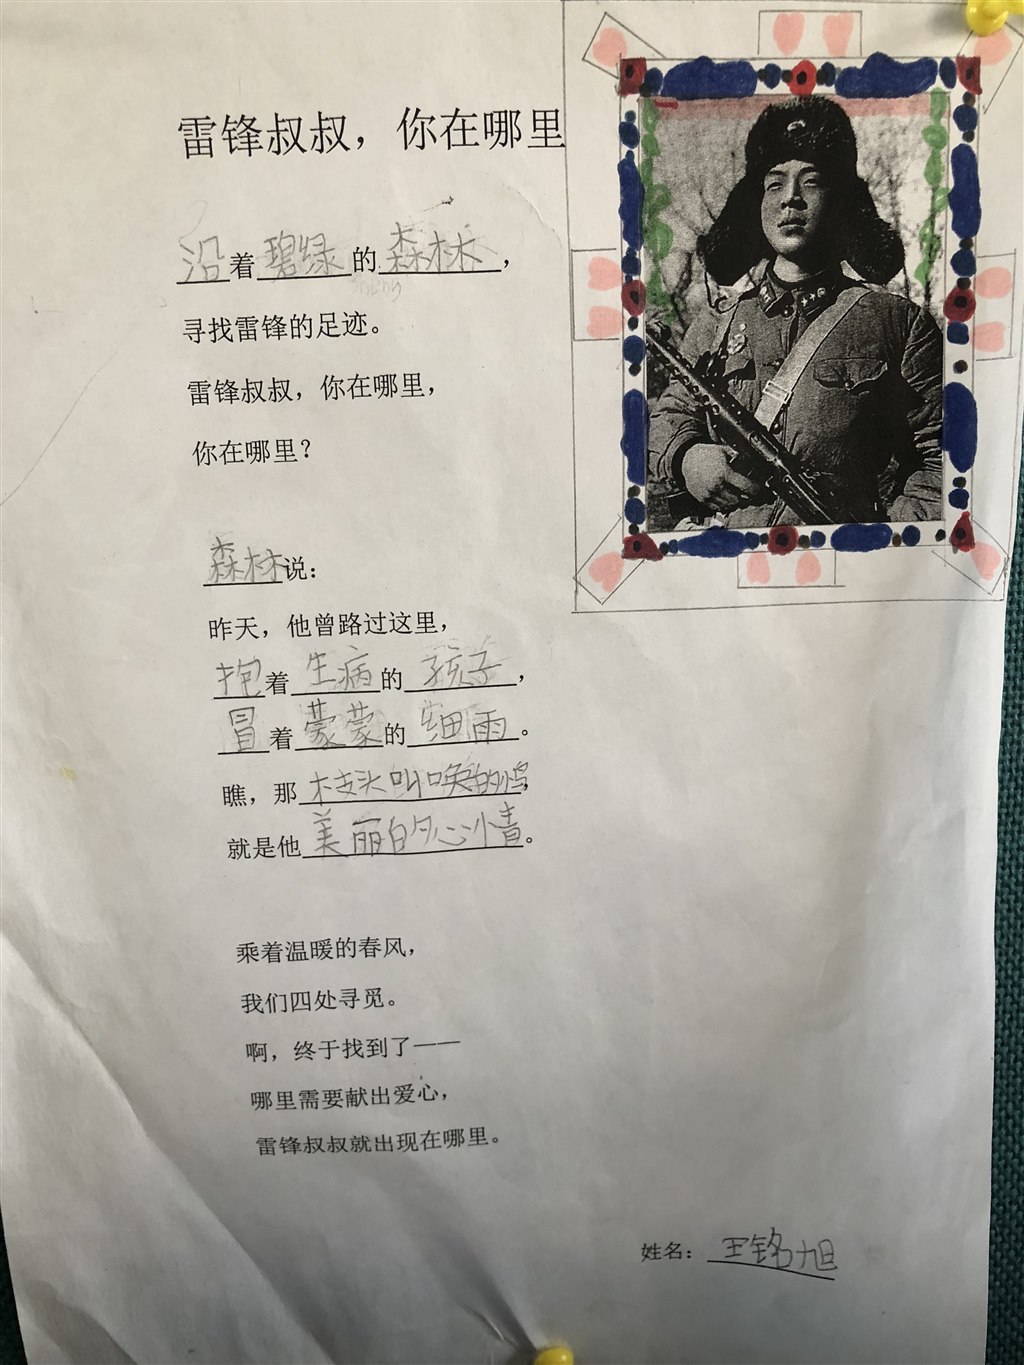 雷锋叔叔，你在哪里
沿着碧绿的森林，
寻找雷锋的足迹。
雷锋叔叔，你在哪里，
你在哪里？
森林说：
昨天，他曾路过这里，
抱着生病的孩子，
冒着蒙蒙的细雨。
瞧，那枝头叫唤的鸟，
就是他美丽的心情。
乘着温暖的春风，
我们四处寻觅。
啊，终于找到了——
哪里需要献出爱心，
雷锋叔叔就出现在哪里。
姓名：王铭旭